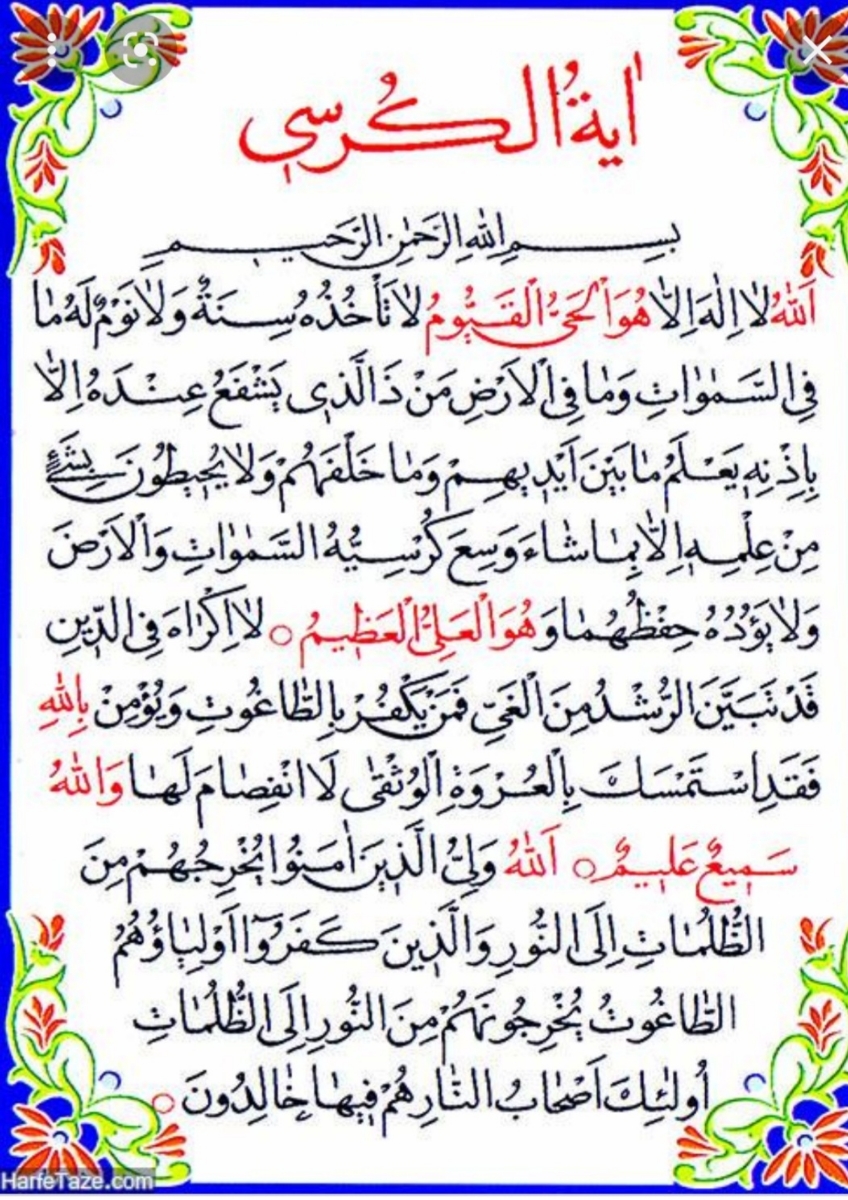 اٰیةُ الکُرسي
بِسِمِ اللهِ الرَّحمٰنِ الرَّحیمِ
اَللهُ لا اِلٰهَ اِلاّٰ هُوَ الْحَیُّ الْقَیُّومُ لا تَأْخُذُهُ سِنَةٌ وَلا نَوْمٌ لَهُ مٰا
فِی السَّمٰوٰاتِ وَمٰا فِی الْاَرْضِ مَنْ ذَا الَّذی یَشْفَعُ عِنْدَهُ اِلاّٰ
بِاِذْنِهِ یَعْلَمُ مٰا بَیْنَ اَیْدیهِمْ وَمٰا خَلْفَهُمْ وَلا یُحیطُونَ بِشَیْءٍ
مِنْ عِلْمِهِ اِلاّٰ بِمٰا شٰاءَ وَسِعَ کُرْسِیُّهُ السَّمٰوٰاتِ وَالْاَرْضَ
وَلا یَؤُدُهُ حِفْظُهُمٰا وَ هُوَ الْعَلِیُّ الْعَظیمُ ○ لا اِکْرٰاهَ فِی الدّینِ
قَدْ تَبَیَّنَ الرُّشْدُ مِنَ الْغَیِّ فَمَنْ یَکْفُرْ بِالطّٰاغُوتِ وَیُؤْمِنْ بِاللهِ
فَقَدِ اسْتَمْسَكَ بِالْعُرْوَةِ الْوُثْقٰی لَا انْفِصٰامَ لَهٰا وَاللهُ
سَمیعٌ عَلیمٌ ○ اَللهُ وَلِیُّ الَّذینَ اٰمَنُوا یُخْرِجُهُمْ مِنَ
الظُّلُمٰاتِ اِلَی النُّورِ وَالَّذینَ کَفَرُوٓا اَوْلِیٰاؤُهُمُ
الطّٰاغُوتُ یُخْرِجُونَهُمْ مِنَ النُّورِ اِلَی الظُّلُمٰاتِ
اُولٰئِكَ اَصْحٰابُ النّٰارِ هُمْ فیهٰا خٰالِدُونَ ○
HarfeTaze.com